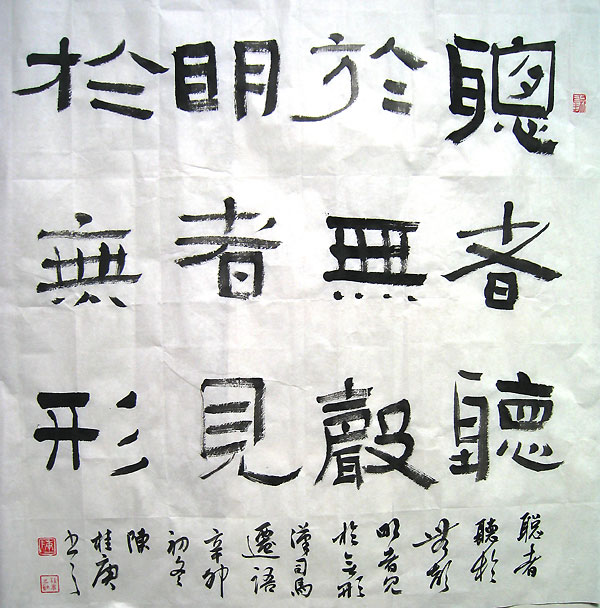 聰者聽
於無聲
明者見
於無形
聰者
聽於
無聲
明者見
於無形
漢司馬
遷語
辛卯
初冬
陳
桂庚
书之